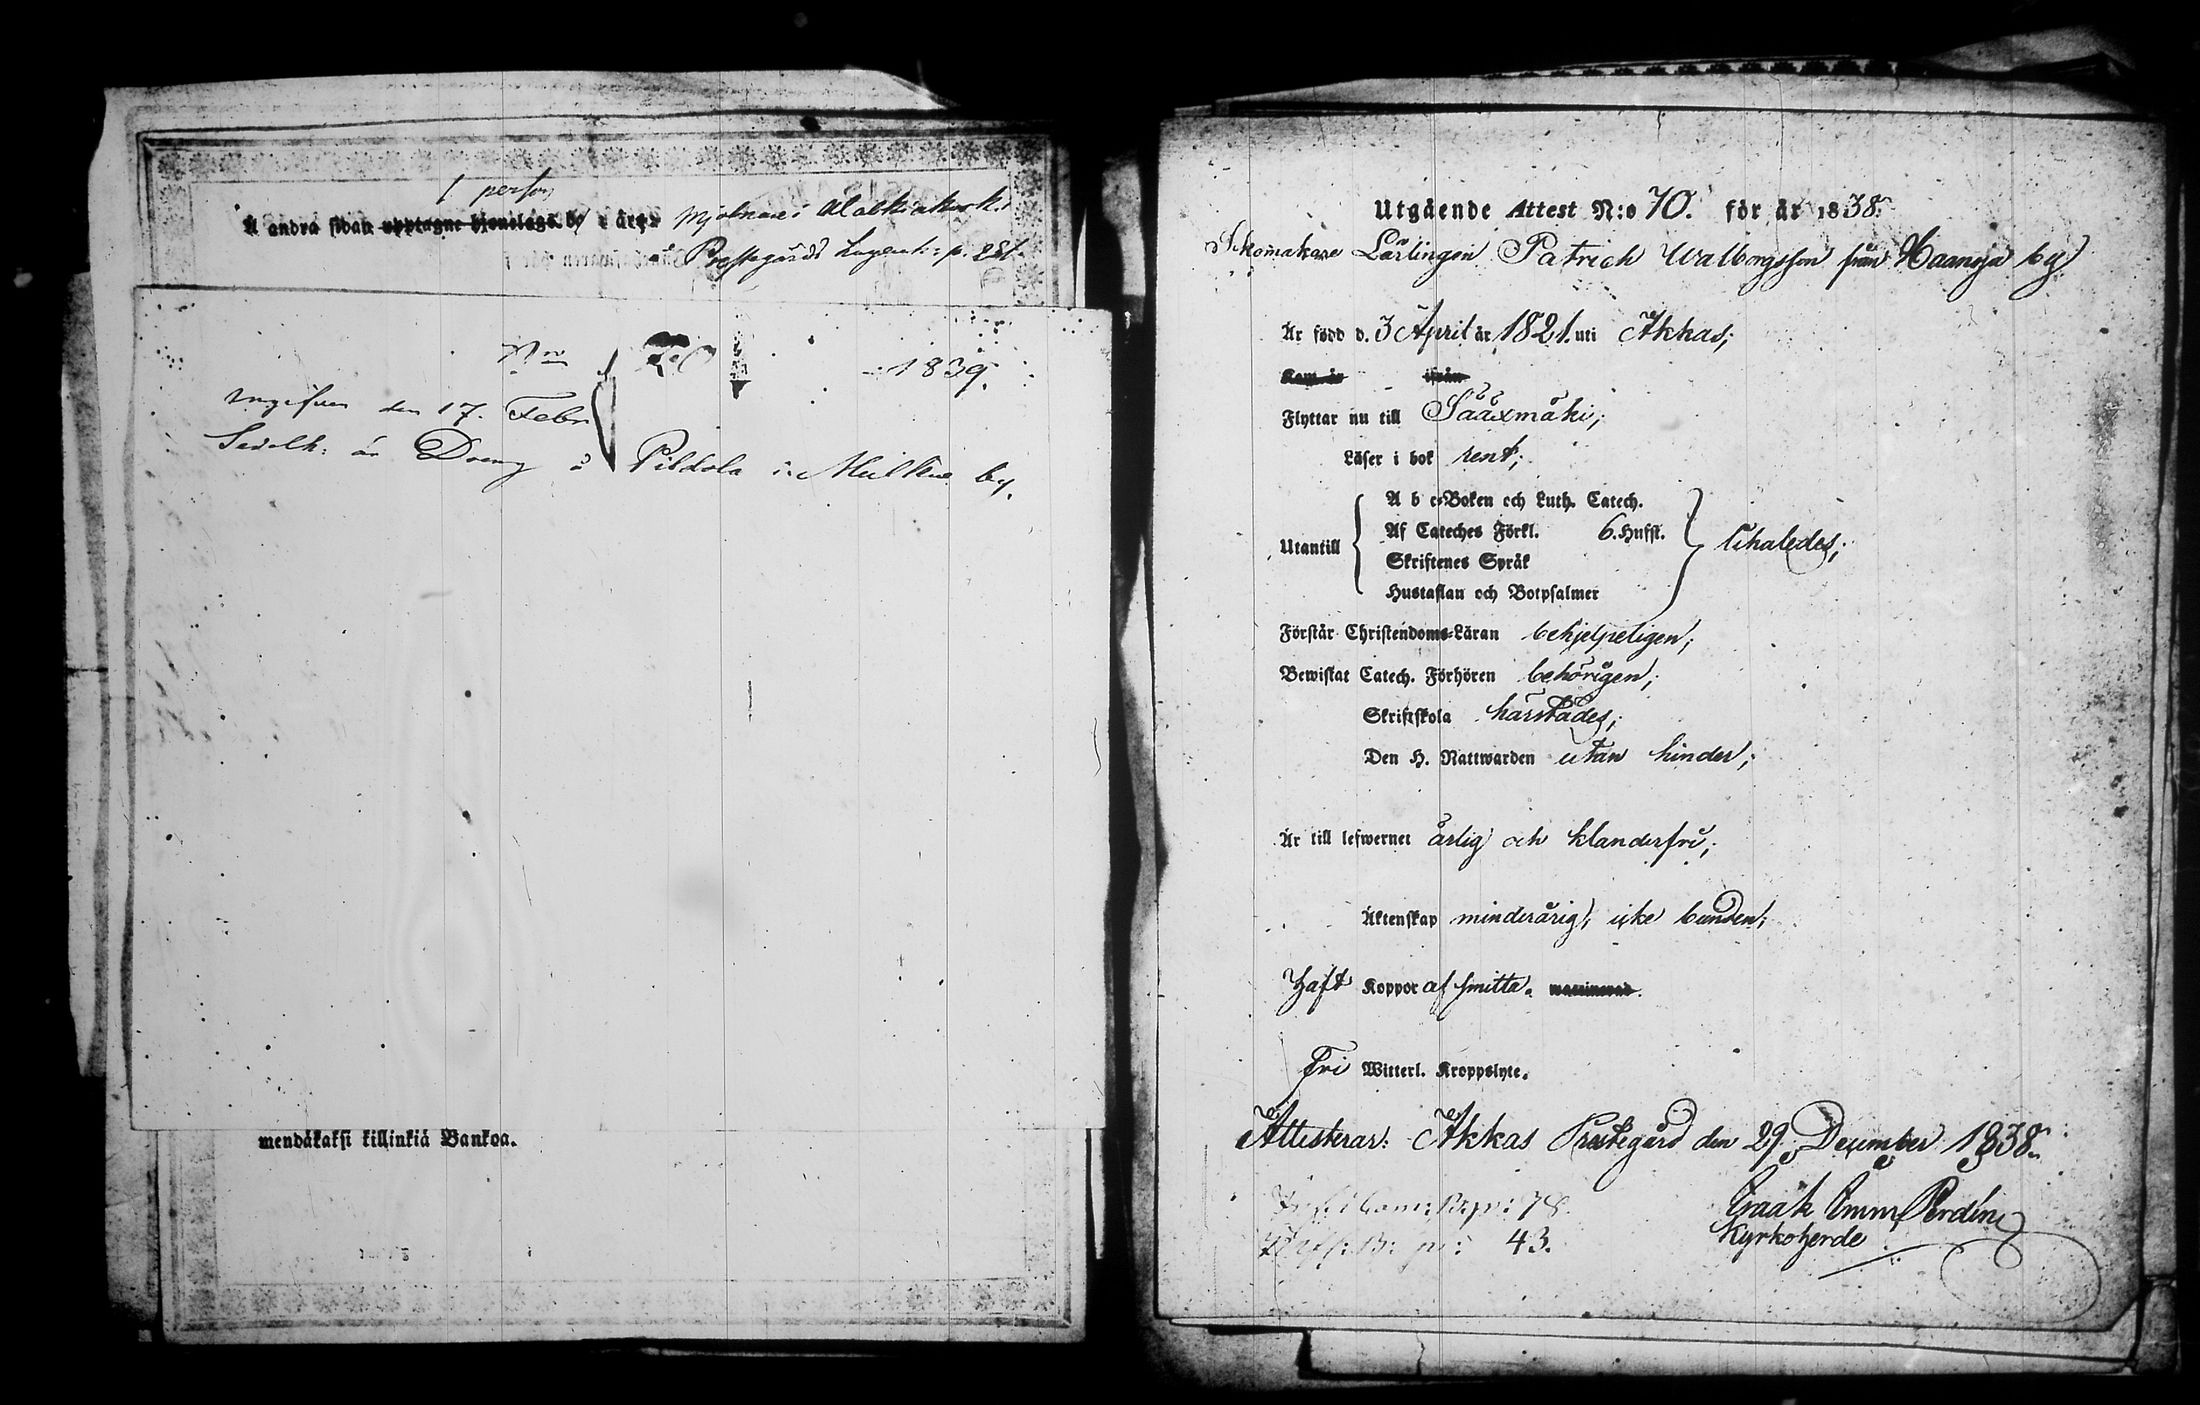 1 person
Å andra sidan upptagne hjonelags be är
Mjölnare i Walkiakoski
å Prestegårds
N:ro 1839.
ingifven den 17. Febr
Sedelh: är Dreng å Pildola i Mulkue by.
mendäkaksi killinkiä Bankoa.
Utgående Attest N:o 70. för år 1838.
Skomakare Lärlingen Patrich Walborgsson från Haanoja by
Är född d. 3 April år 1821. uti Akkas;
Kom år ifrån
Flyttar nu till Sääxmäki;
Läser i bok rent;
Utantill
A b c-Boken och Luth. Catech.
Af Cateches Förkl. 6. Hufst.
Skriftenes Språk
Hustaflan och Botpsalmer
likaledes;
Förstår Christendoms-Läran behjelpeligen;
Bewistat Catech. Förhören behörigen;
Skriftskola härstädes;
Den H. Nattwarden utan hinder;
Är till lefwernet ärlig och klanderfri;
Äktenskap minderårig, icke bunden;
Haft Koppor af smitta. waccinerad.
Fri Witterl. Kroppslyte.
Attesterar: Akkas Prestegård den 29 December 1838.
78.
43.
Isaak Emm Perdén
Kyrkoherde